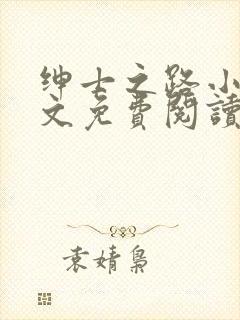 绅士之路小
文免費閱讀
袁婧梟